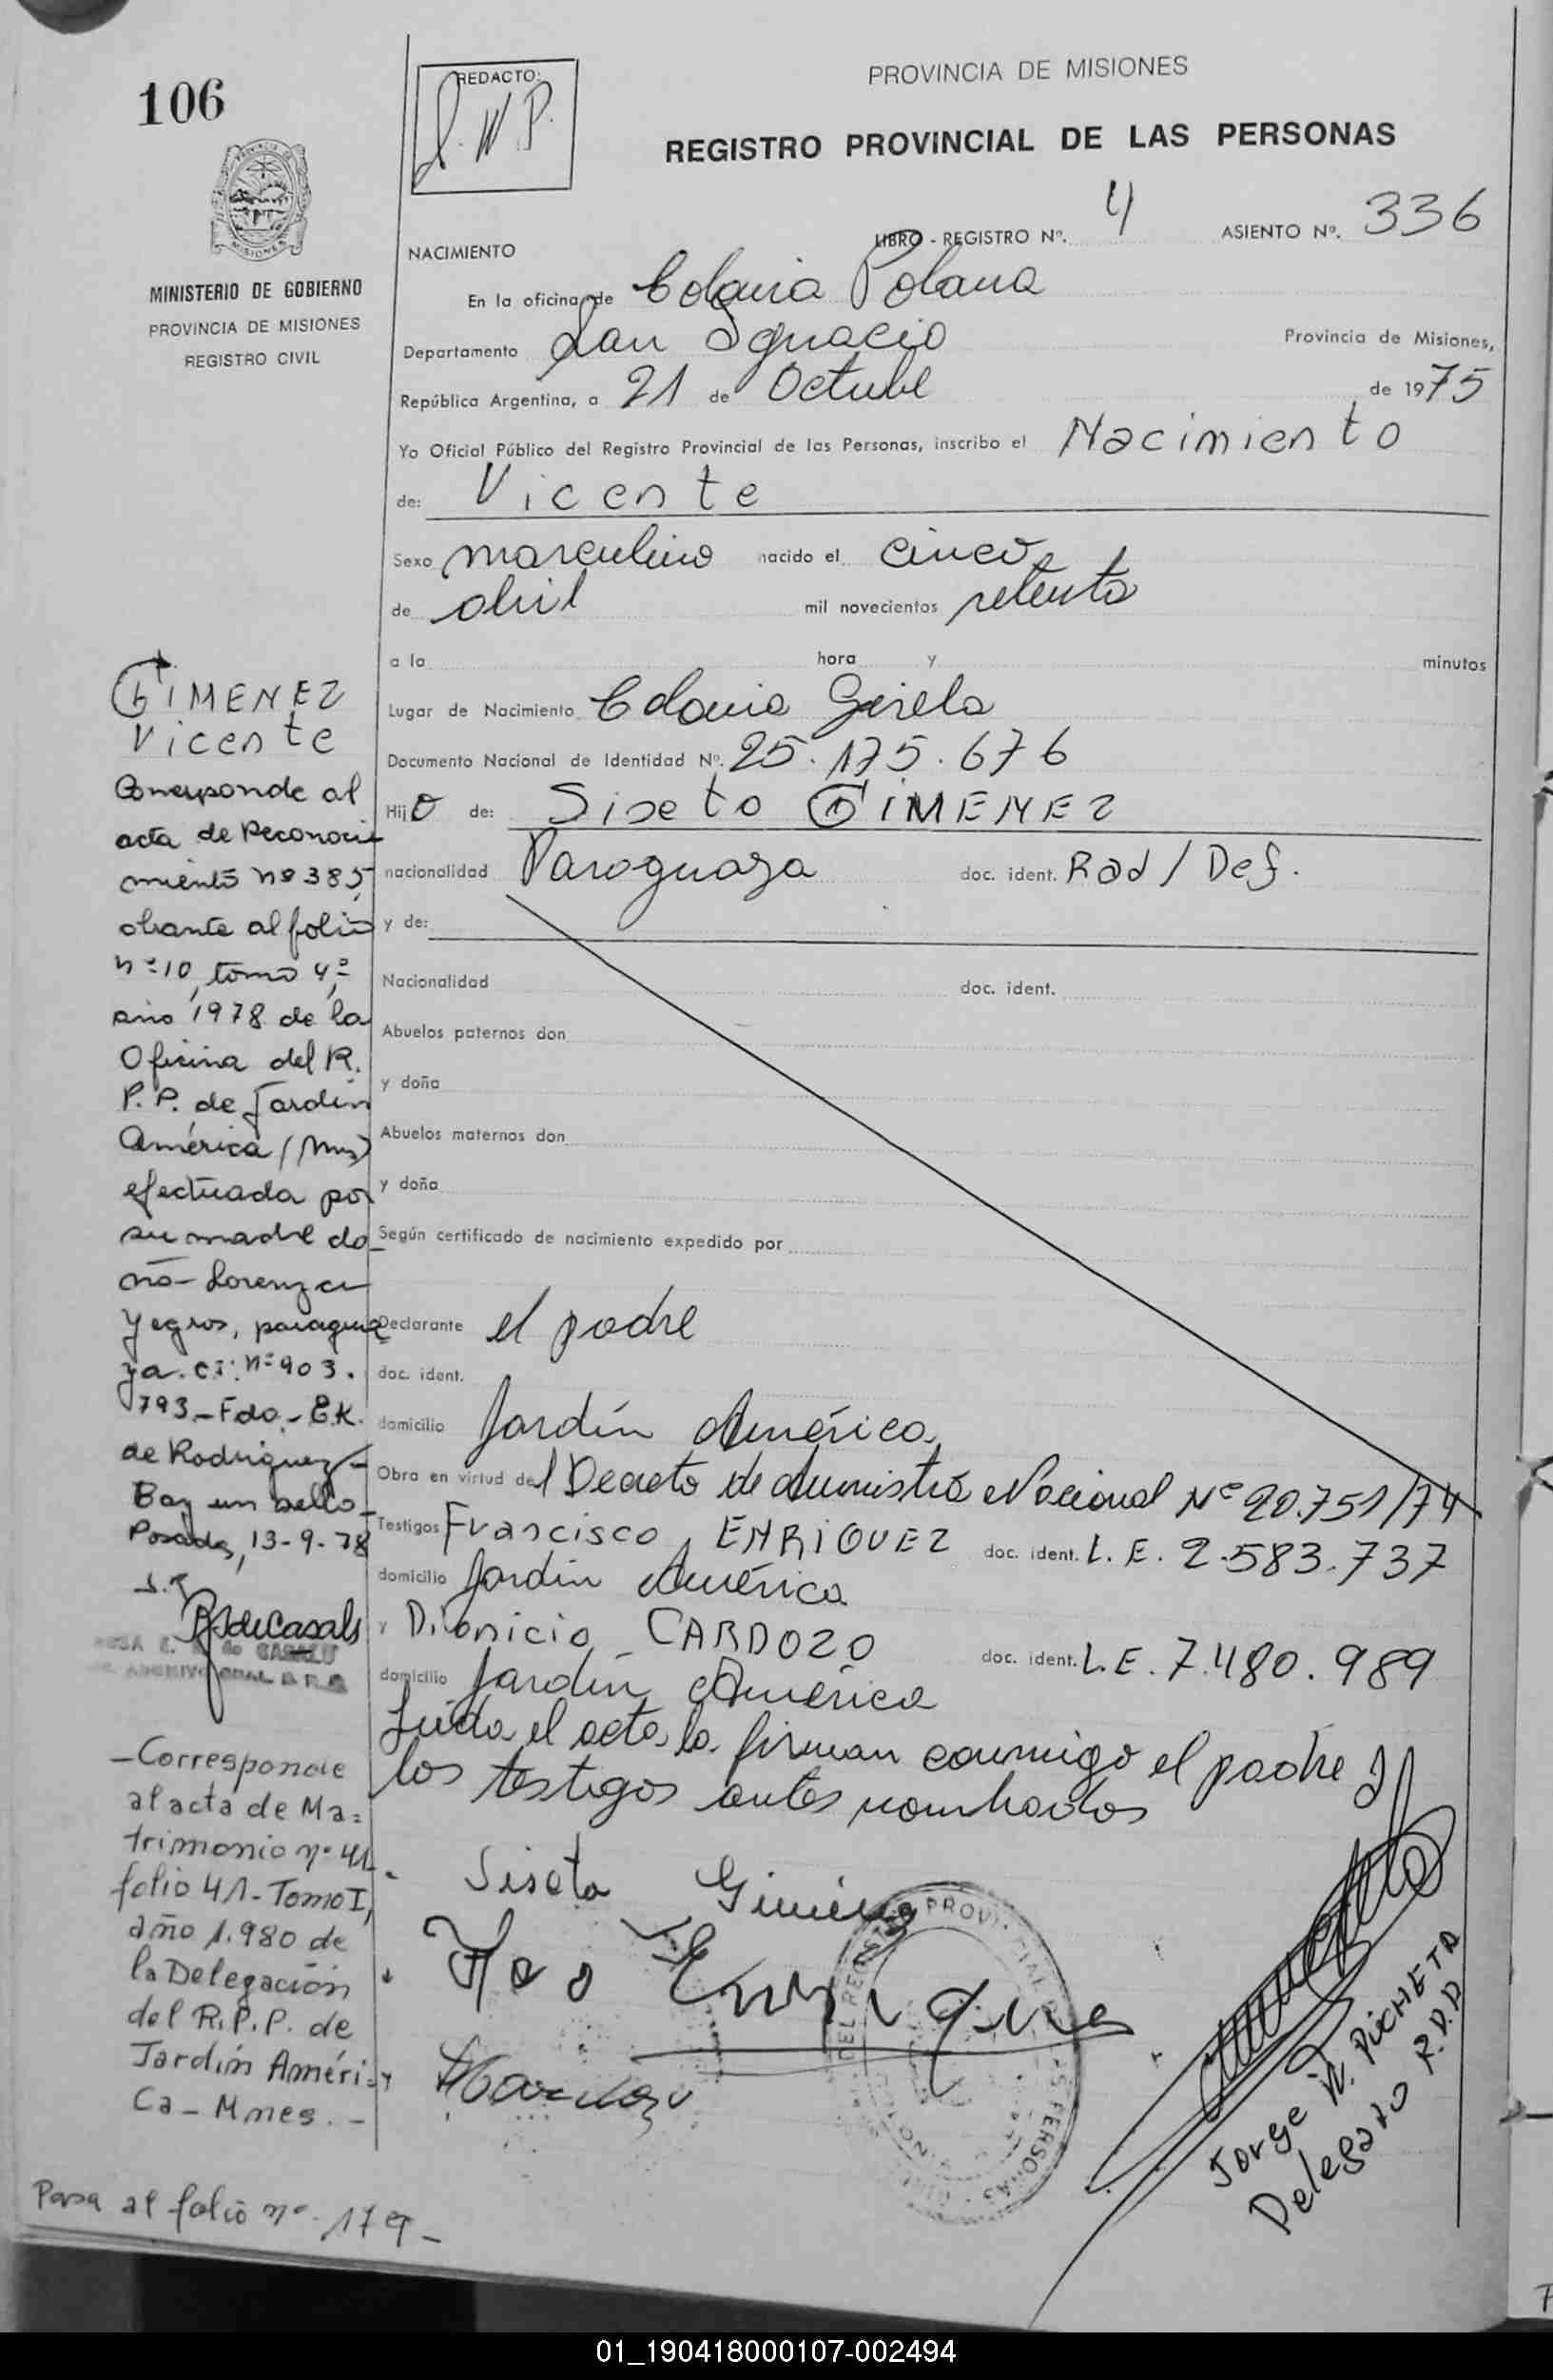 106
REDACTO:
PROVINCIA DE MISIONES
REGISTRO PROVINCIAL DE LAS PERSONAS
LIBRO - REGISTRO Nº. 4 ASIENTO Nº. 336
NACIMIENTO
MINISTERIO DE GOBIERNO
PROVINCIA DE MISIONES
REGISTRO CIVIL
En la oficina de Colonia Polana
Departamento San Ignacio Provincia de Misiones,
República Argentina, a 21 de Octubre de 1975
Yo Oficial Público del Registro Provincial de las Personas, inscribo el Nacimiento
de: Vicente
Sexo masculino nacido el cinco
de abril mil novecientos setenta
a la hora y minutos
Lugar de Nacimiento Colonia Gisela
Documento Nacional de Identidad Nº. 25.175.676
Hijo de: Siseto GIMENEZ
nacionalidad Paraguaya doc. ident. Rad/Def.
y de:
Nacionalidad doc. ident.
Abuelos paternos don
y doña
Abuelos maternos don
y doña
Según certificado de nacimiento expedido por
Declarante el padre
doc. ident.
domicilio Jardín América
Obra en virtud del Decreto de Amnistía Nacional Nº 20.751/74
Testigos Francisco ENRIQUEZ doc. ident. L.E. 2.583.737
domicilio Jardín América
y Dionicio CARDOZO doc. ident. L.E. 7.480.989
domicilio Jardín América
Leída el acta la firman conmigo el padre y
los testigos antes nombrados
GIMENEZ
Vicente
Corresponde al
acta de Reconoci
miento nº 385,
obrante al folio
nº 10, tomo 4º,
año 1978 de la
Oficina del R.
P.P. de Jardín
América (Mns)
efectuada por
su madre do
ña Lorenza
Yegros, paragua
ya. CI: nº 903.
793_Fdo._E.K.
de Rodriguez_
Hay un sello_
Posadas, 13-9-78
_Corresponde
al acta de Ma=
trimonio nº 41
folio 41-Tomo I,
año 1.980 de
la Delegación
del R.P.P. de
Jardín Améri=
Ca_Mnes._
Siseto Giménez
Fco Enriquez
Jorge W. PICHETA
Delegado R.P.P.
Pasa al folio nº. 179_
01_190418000107-002494